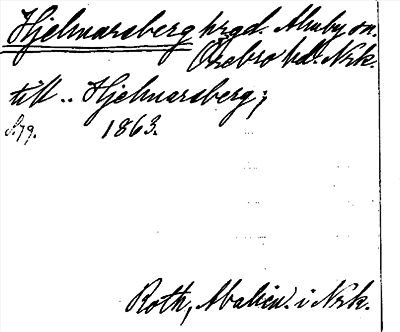 Hjelmarsberg hrgd. Almby sn.
Örebro hd. Nrk.
till .. Hjelmarsberg;
S. 79. 1863.
Roth, Abalien. i Nrk.